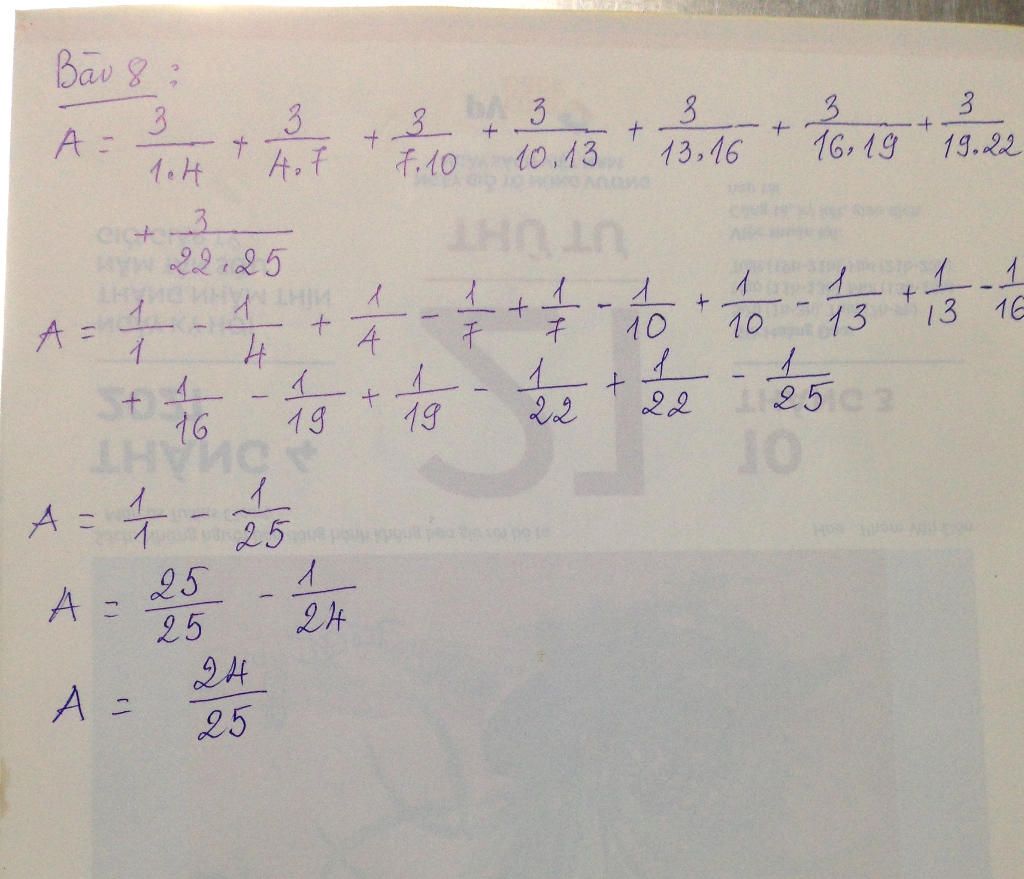 Bài 8 :
A = 3/1.4 + 3/4.7 + 3/7.10 + 3/10.13 + 3/13.16 + 3/16.19 + 3/19.22
+ 3/22.25
A = 1/1 - 1/4 + 1/4 - 1/7 + 1/7 - 1/10 + 1/10 - 1/13 + 1/13 - 1/16
+ 1/16 - 1/19 + 1/19 - 1/22 + 1/22 - 1/25
A = 1/1 - 1/25
A = 25/25 - 1/24
A = 24/25